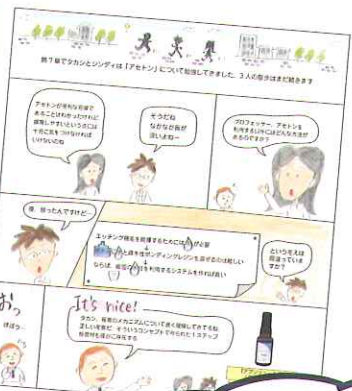 第7章でタカシとシンディは「アセトン」について勉強してきました。3人の散歩はまだ続きます
アセトンが便利な溶媒で
あることはわかったけれど、
揮発しやすいという点には
十分に気をつけなければ
いけないのね
そうだね
なかなか奥が
深いよねー
プロフェッサー、アセトンを
利用する以外にはどんな方法が
あるのですか?
僕、思ったんですけど…
エッチング機能を発揮するためには水が必要
水と疎水性ボンディングレジンを混ぜるのは難しい
ならば、
を利用するシステムを作れば良い
という考えは
間違っていま
すか?
おっ
ほほう…
It's nice!
タカシ、接着のメカニズムについて良く理解してきてるね
正しい考察だ そういうコンセプトで作られた1ステップ
接着材も確かに存在する